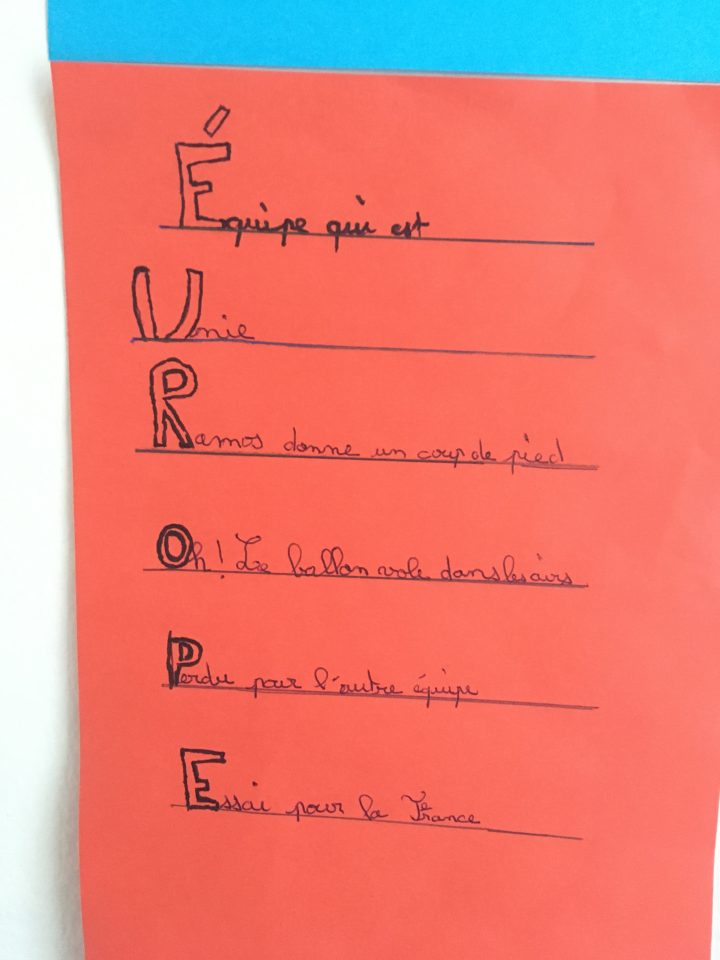 Équipe qui est
Unie
Ramos donne un coup de pied
Oh ! Le ballon vole dans les airs
Perdu pour l'autre équipe
Essai pour la France